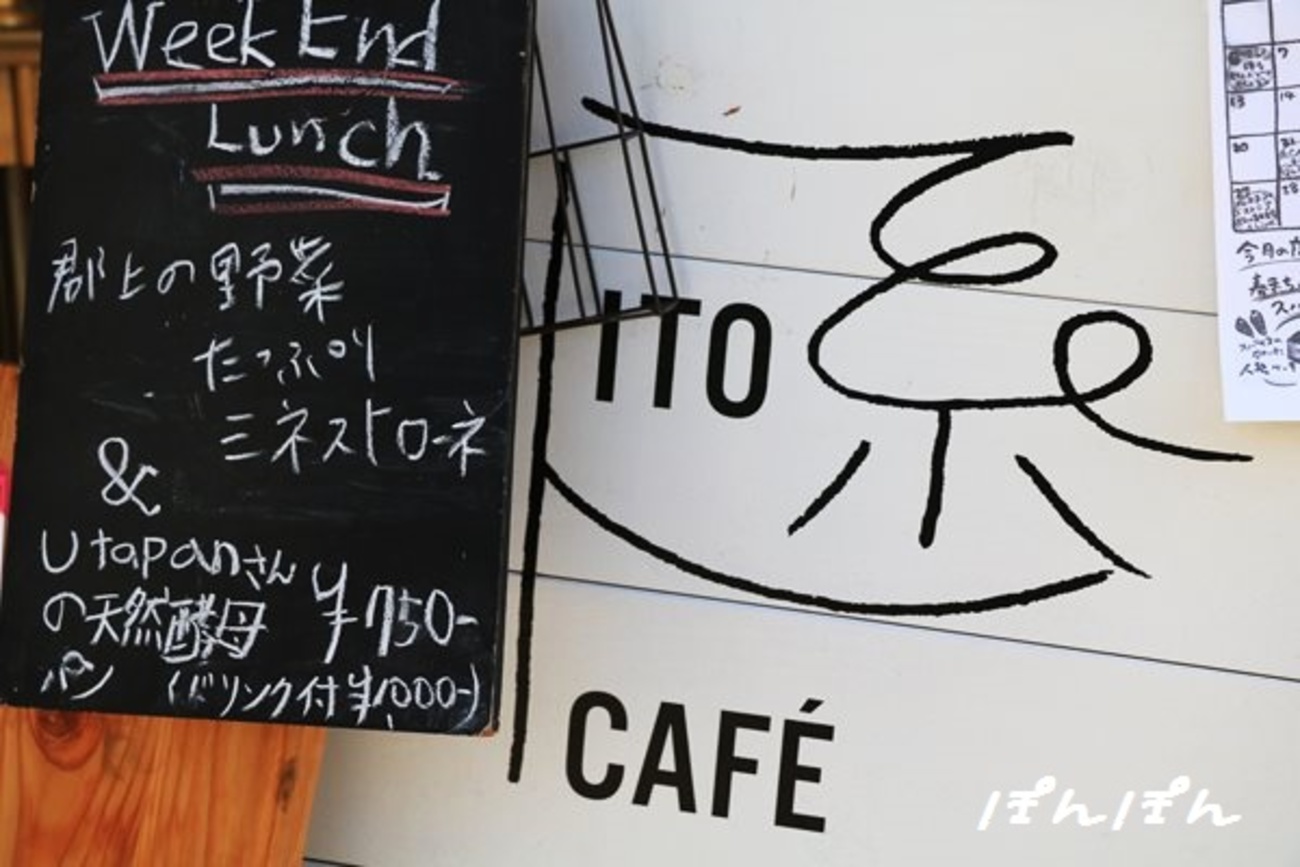 Week End
Lunch
郡上の野菜
たっぷり
ミネストローネ
&
Utapanさん
の天然酵母 ¥750-
パン (ドリンク付¥1000-)
ITO
CAFÉ
7
13
14
20
今月の
ぽんぽん